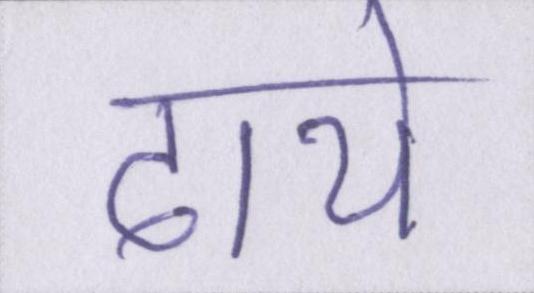 दाये